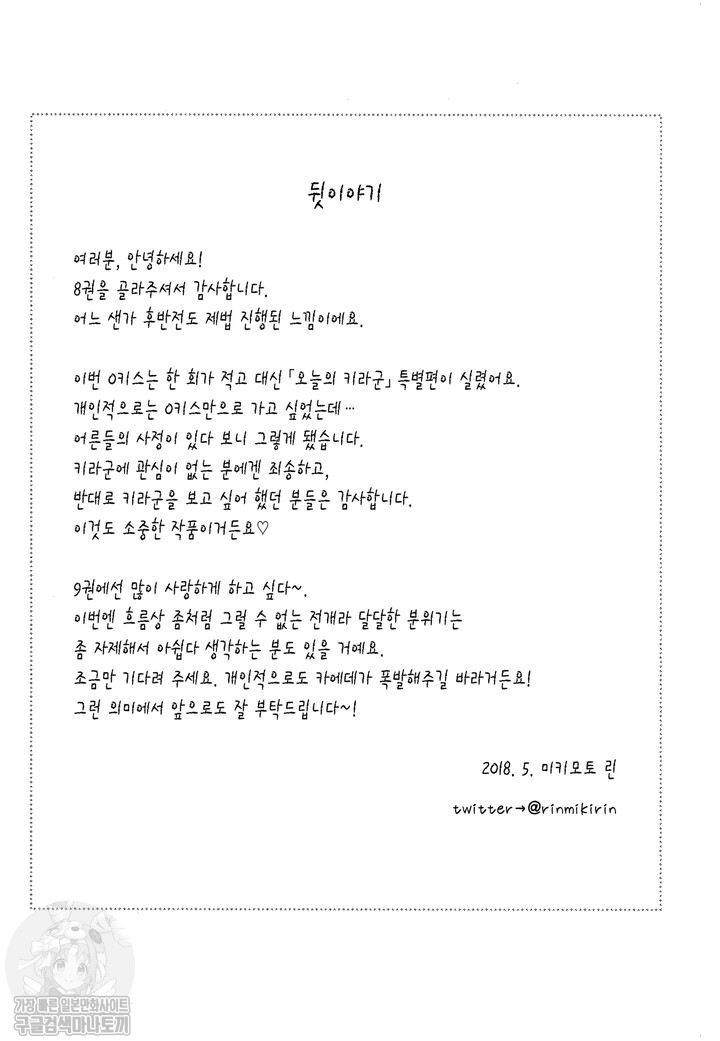 뒷이야기
여러분, 안녕하세요!
8권을 골라주셔서 감사합니다.
어느 샌가 후반전도 제법 진행된 느낌이에요.
이번 O키스는 한 회가 적고 대신 「오늘의 키라군」 특별편이 실렸어요.
개인적으로는 O키스만으로 가고 싶었는데…
어른들의 사정이 있다 보니 그렇게 됐습니다.
키라군에 관심이 없는 분에겐 죄송하고,
반대로 키라군을 보고 싶어 했던 분들은 감사합니다.
이것도 소중한 작품이거든요♡
9권에선 많이 사랑하게 하고 싶다~.
이번엔 흐름상 좀처럼 그럴 수 없는 전개라 달달한 분위기는
좀 자제해서 아쉽다 생각하는 분도 있을 거예요.
조금만 기다려 주세요. 개인적으로도 카에데가 폭발해주길 바라거든요!
그런 의미에서 앞으로도 잘 부탁드립니다~!
2018. 5. 미키모토 린
twitter→@rinmikirin
가장 빠른 일본만화사이트
구글검색마나토끼